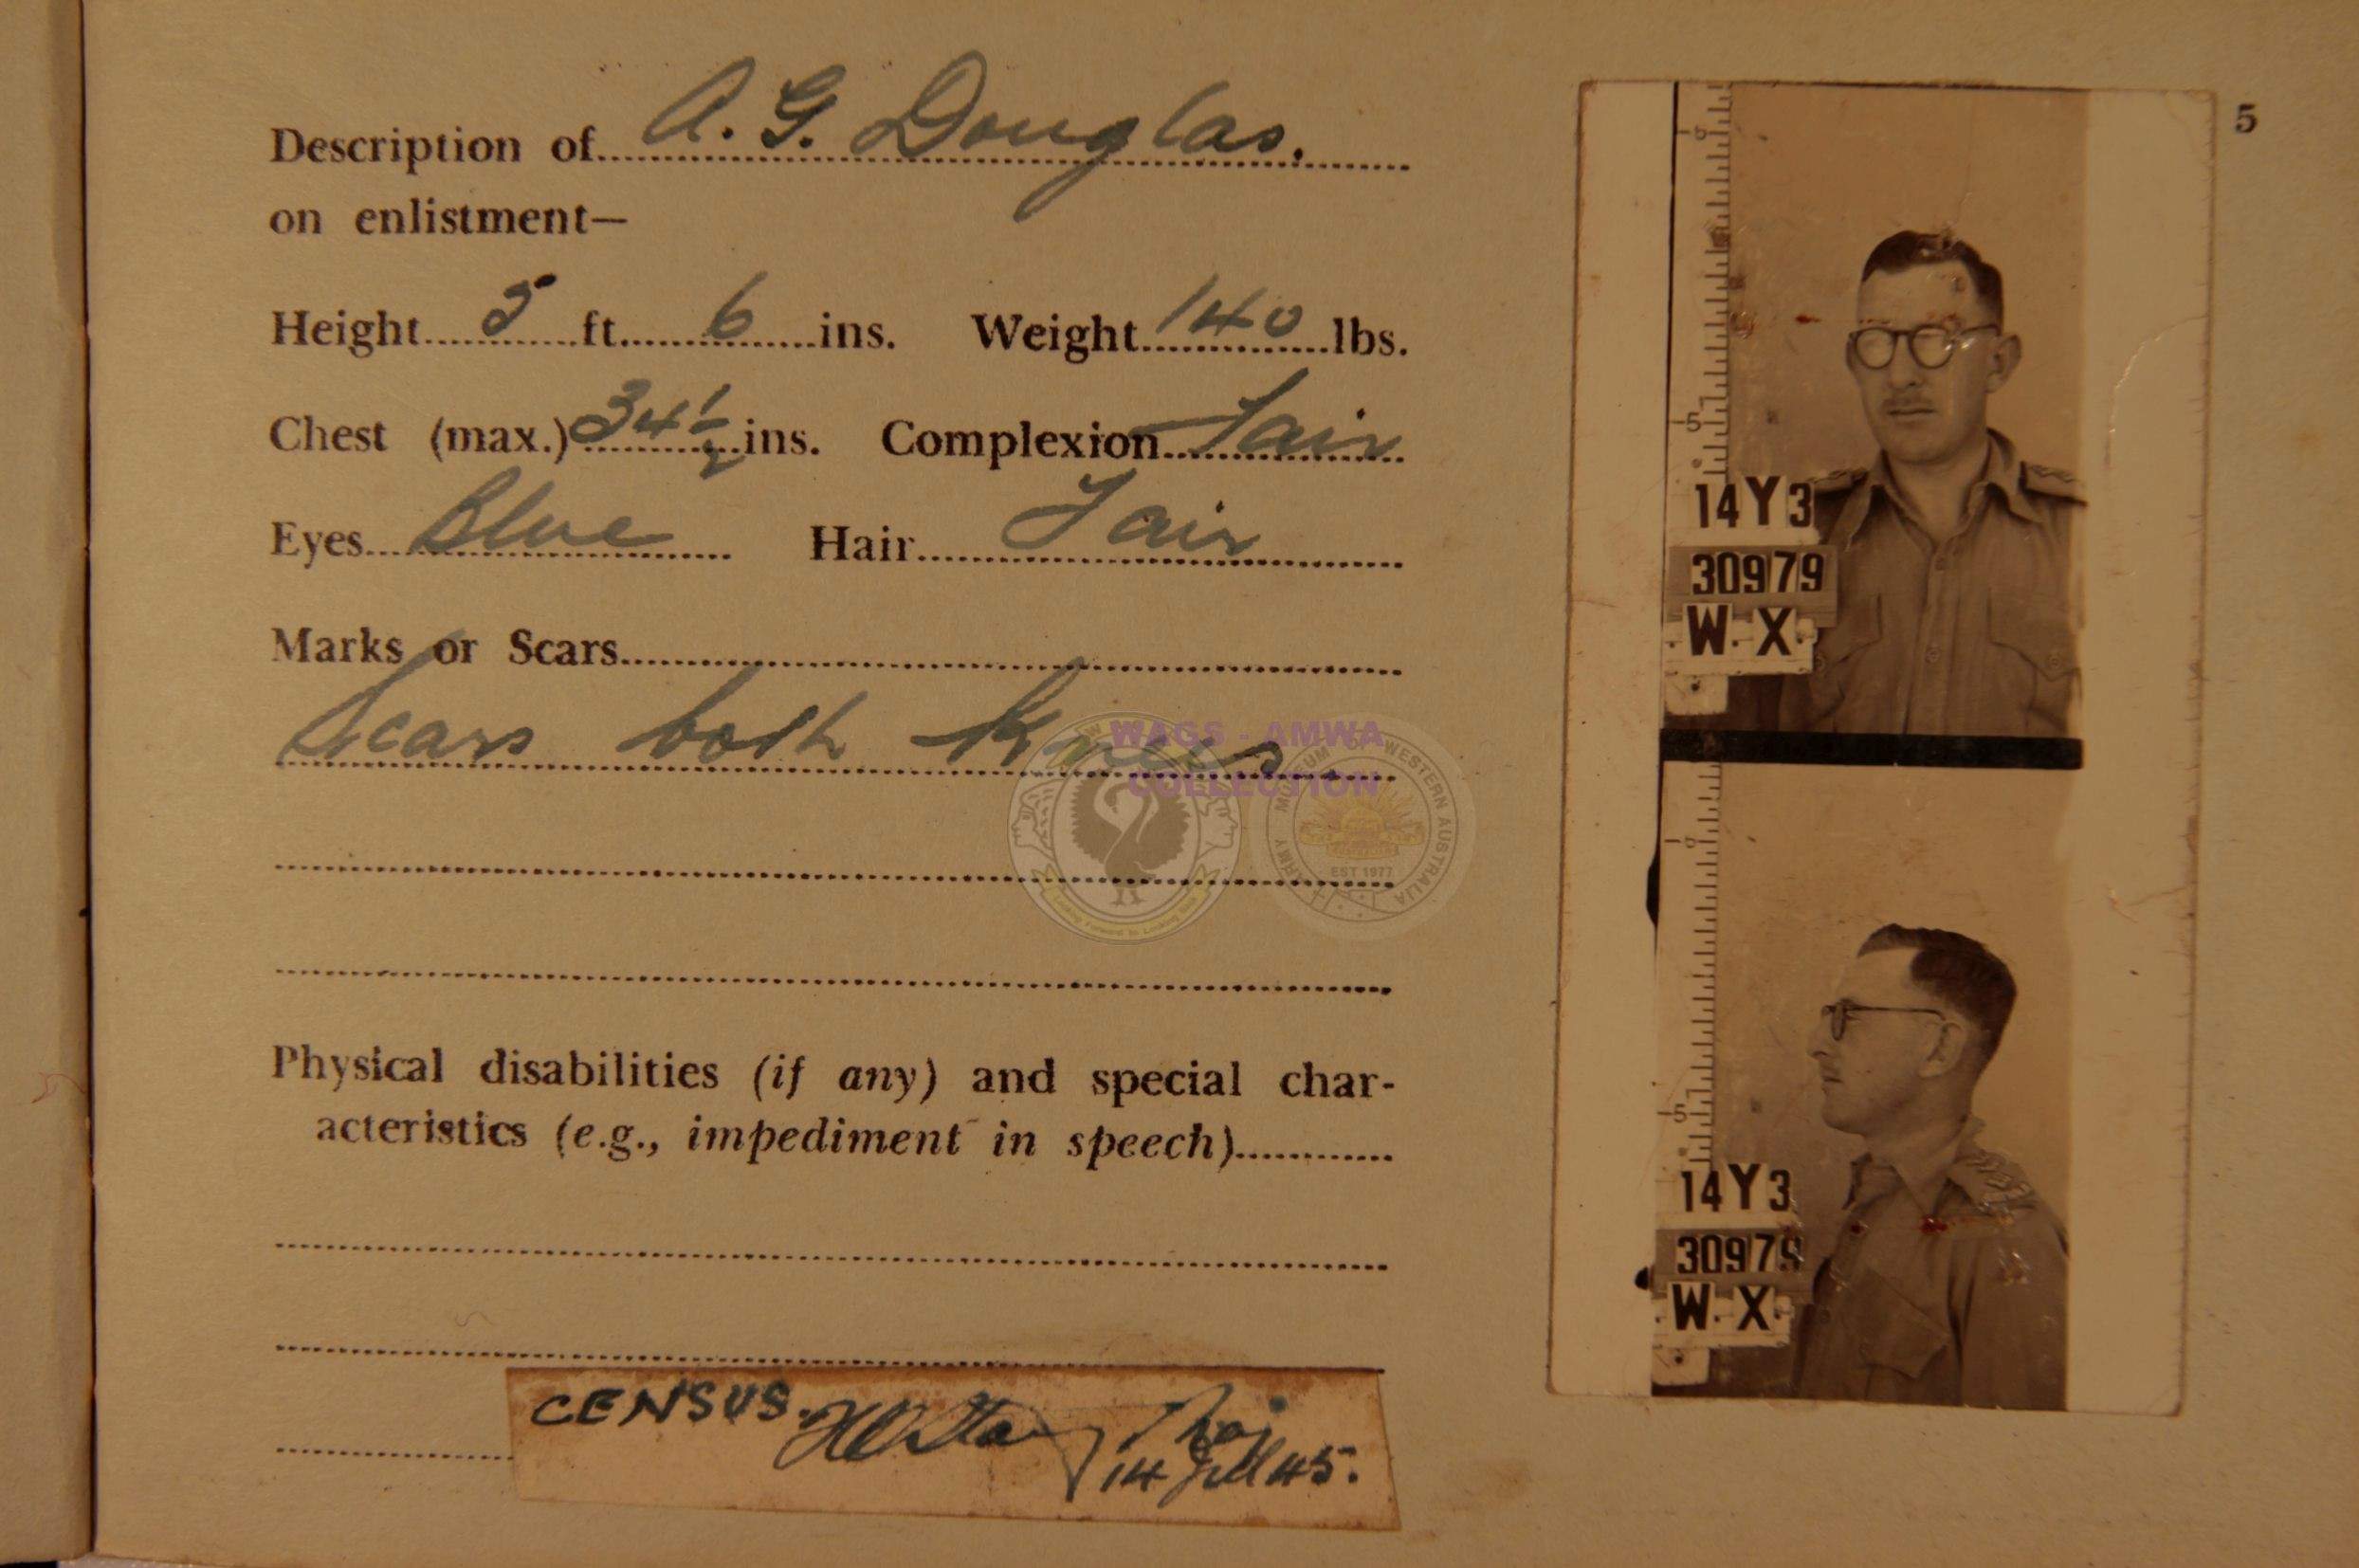 5
Description of A. G. Douglas.
on enlistment—
Height 5 ft. 6 ins. Weight 140 lbs.
Chest (max.) 34½ ins. Complexion Fair
Eyes Blue Hair Fair
Marks or Scars
Scars both Knees.
Physical disabilities (if any) and special char-
acteristics (e.g., impediment in speech)
CENSUS. Maj
14 Jul 45.
5
14Y3
30979
W. X.
5
14Y3
30979
W. X.
WAGS - AMWA
COLLECTION
ARMY MUSEUM OF WESTERN AUSTRALIA
EST 1977